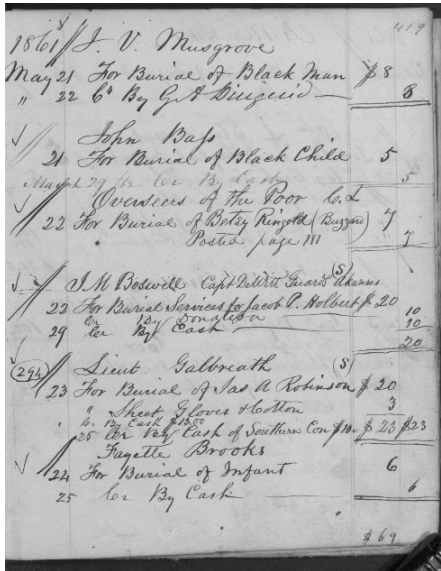 419
1861 J. V. Musgrove
May 21 For Burial of Black Man $8
" 22 Cr By G A Dinguid 8
John Bass
21 For Burial of Black Child 5
29 Cr By Cash 5
Overseers of the Poor C. L
22 For Burial of Betsy Ringold (Buzzard) 7
Posted page 111 7
J M Boswell Capt DeWitt Guards Arkansas (S)
22 For Burial Services for Jacob P. Holbert $20
Cr By Donation 10
29 Cr By Cash 10
20
294 Lieut Galbreath (S)
23 For Burial of Jas A Robinson $20
" Sheet Gloves & Cotton 3
" Cr By Cash $13.00
25 Cr By Cash of Southern Con $10 $23 $23
Fayette Brooks
24 For Burial of Infant 6
25 Cr By Cash 6
$69